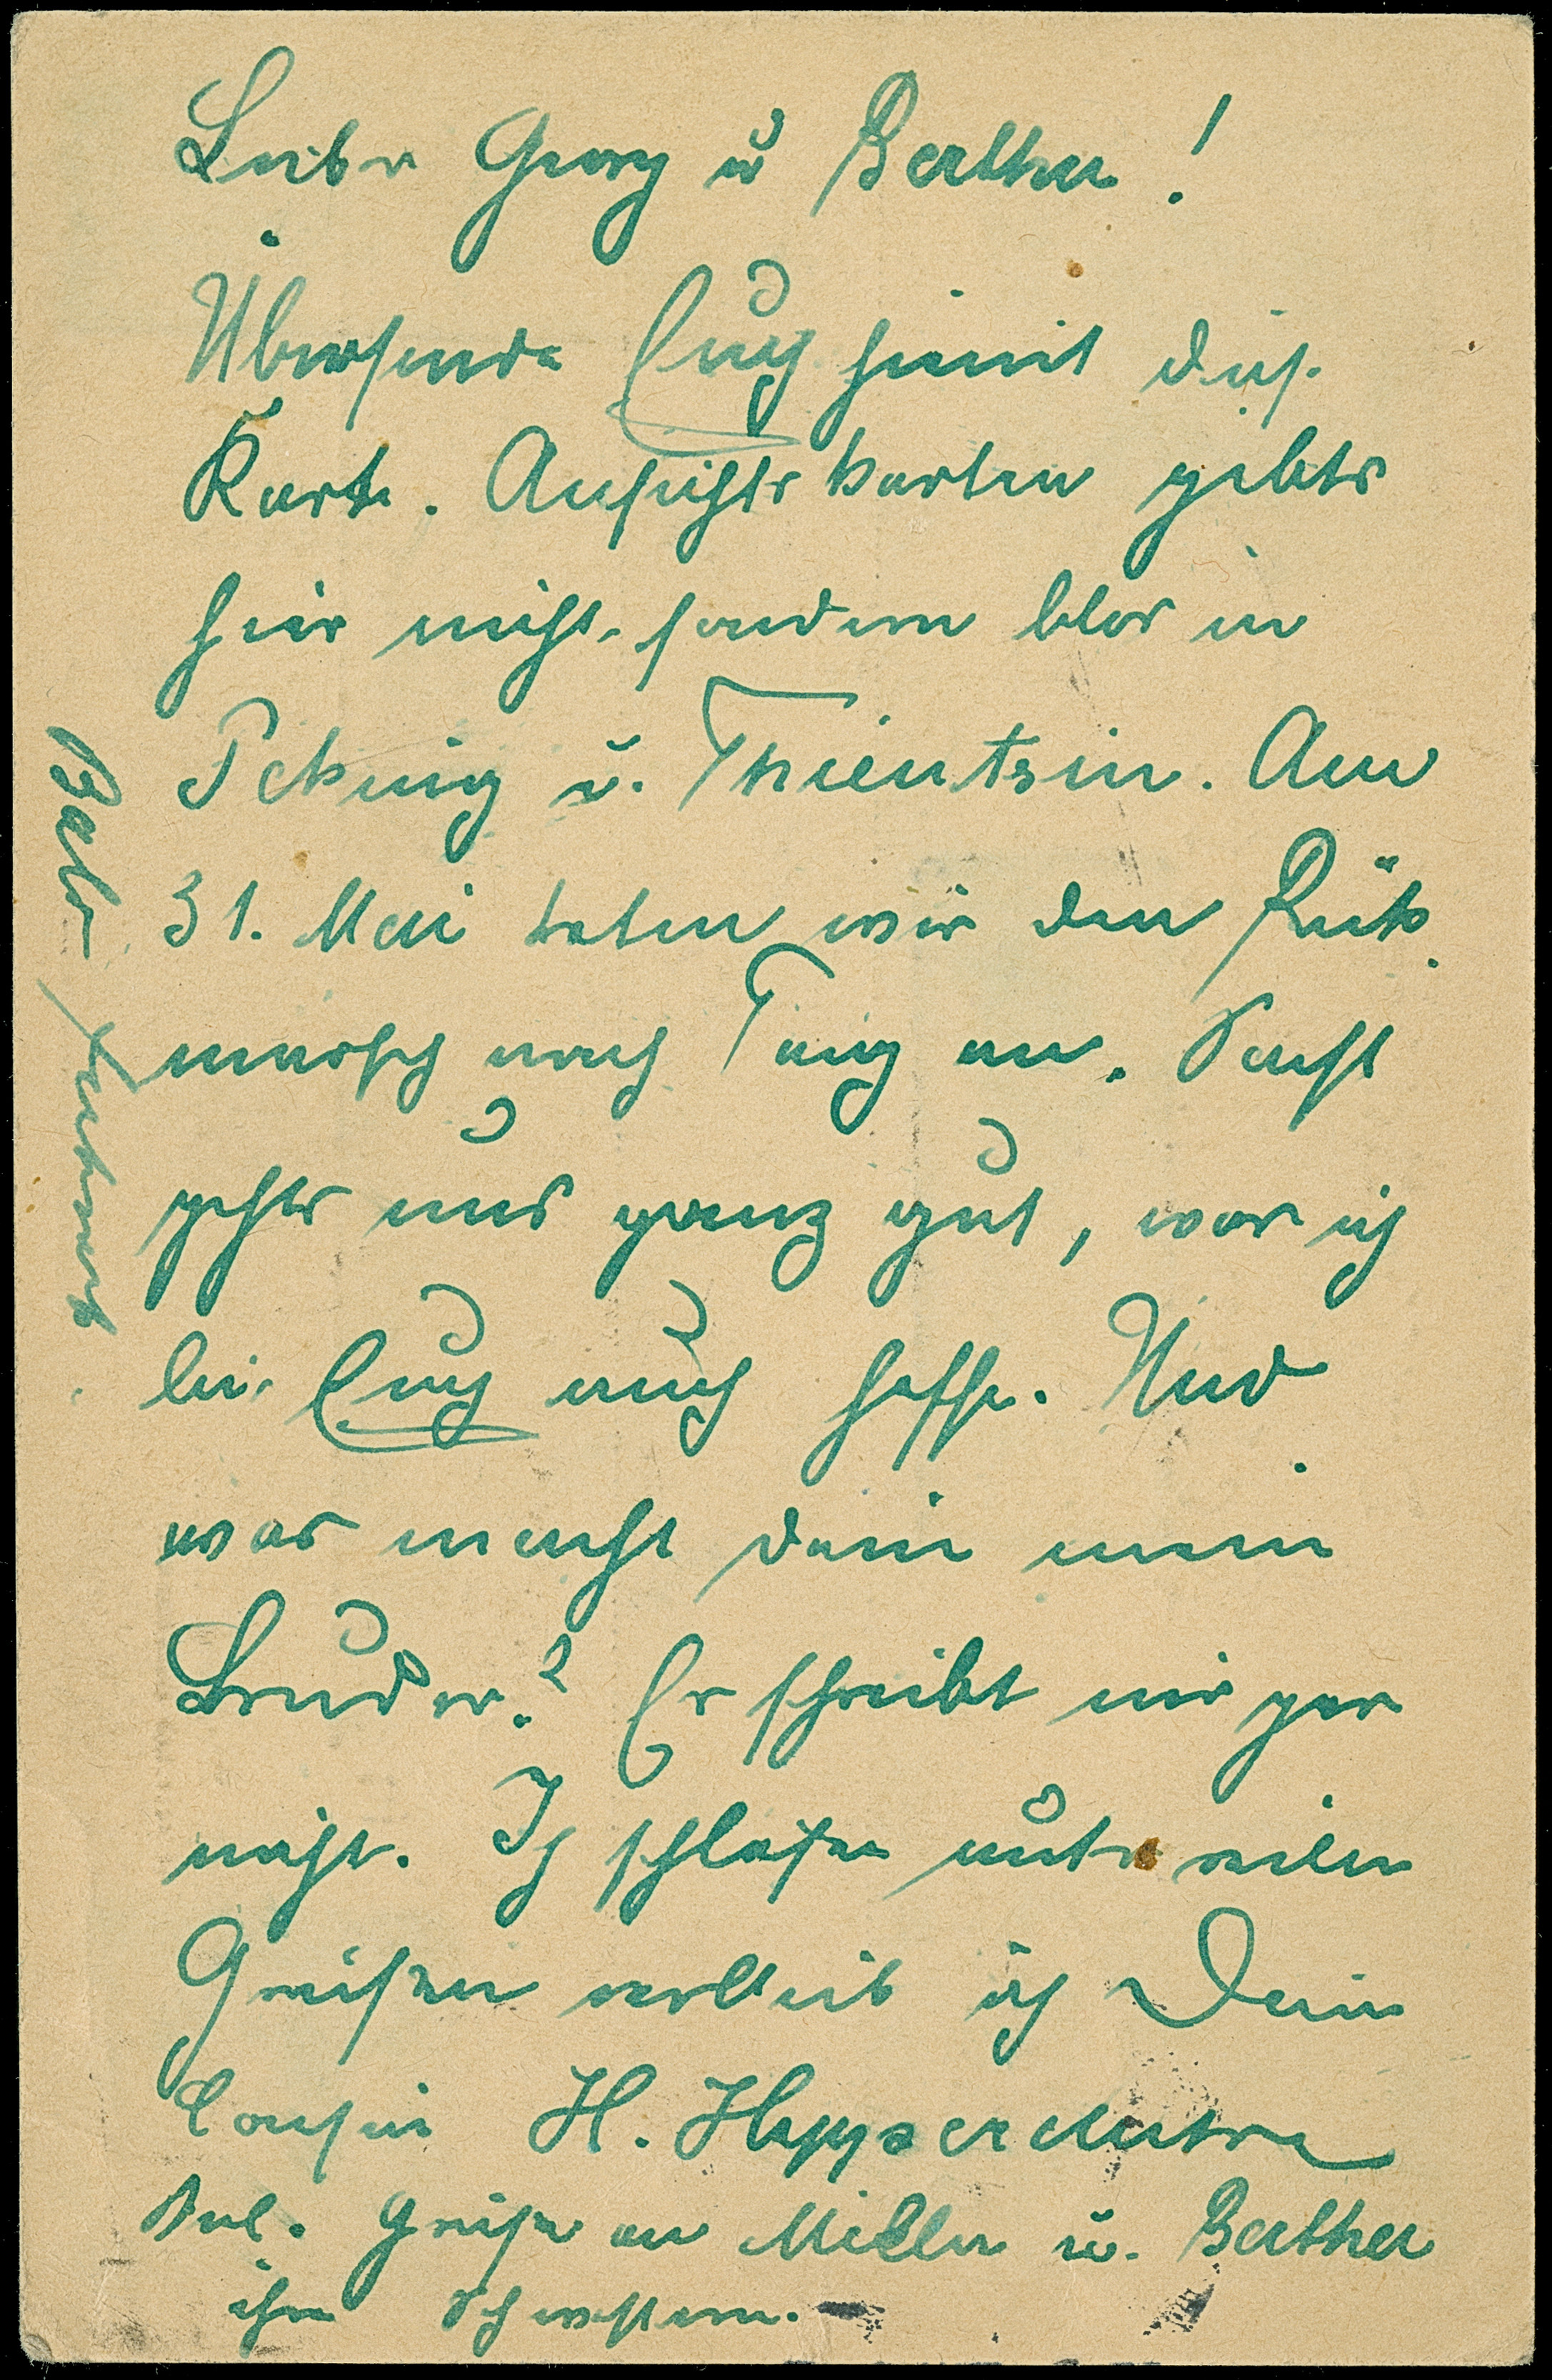 Lieber Georg u Bertha!
Übersende Euch hiemit dies.
Karte. Ansichtskarten gibts
hier nicht, sondern blos in
Peking u. Thientsin. Am
31. Mai traten wir den Rück
marsch nach Tang an. Sonst
gehts uns ganz gut, was ich
bei Euch auch hoffe. Und
was macht denn mein
Bruder? Er schreibt mir gar
nicht. Ich schließe unter vielen
Grüßen verbleib ich Dein
Cousin H.
Bes. Grüße an Miller u. Bertha
ihre Schwestern.
Bald